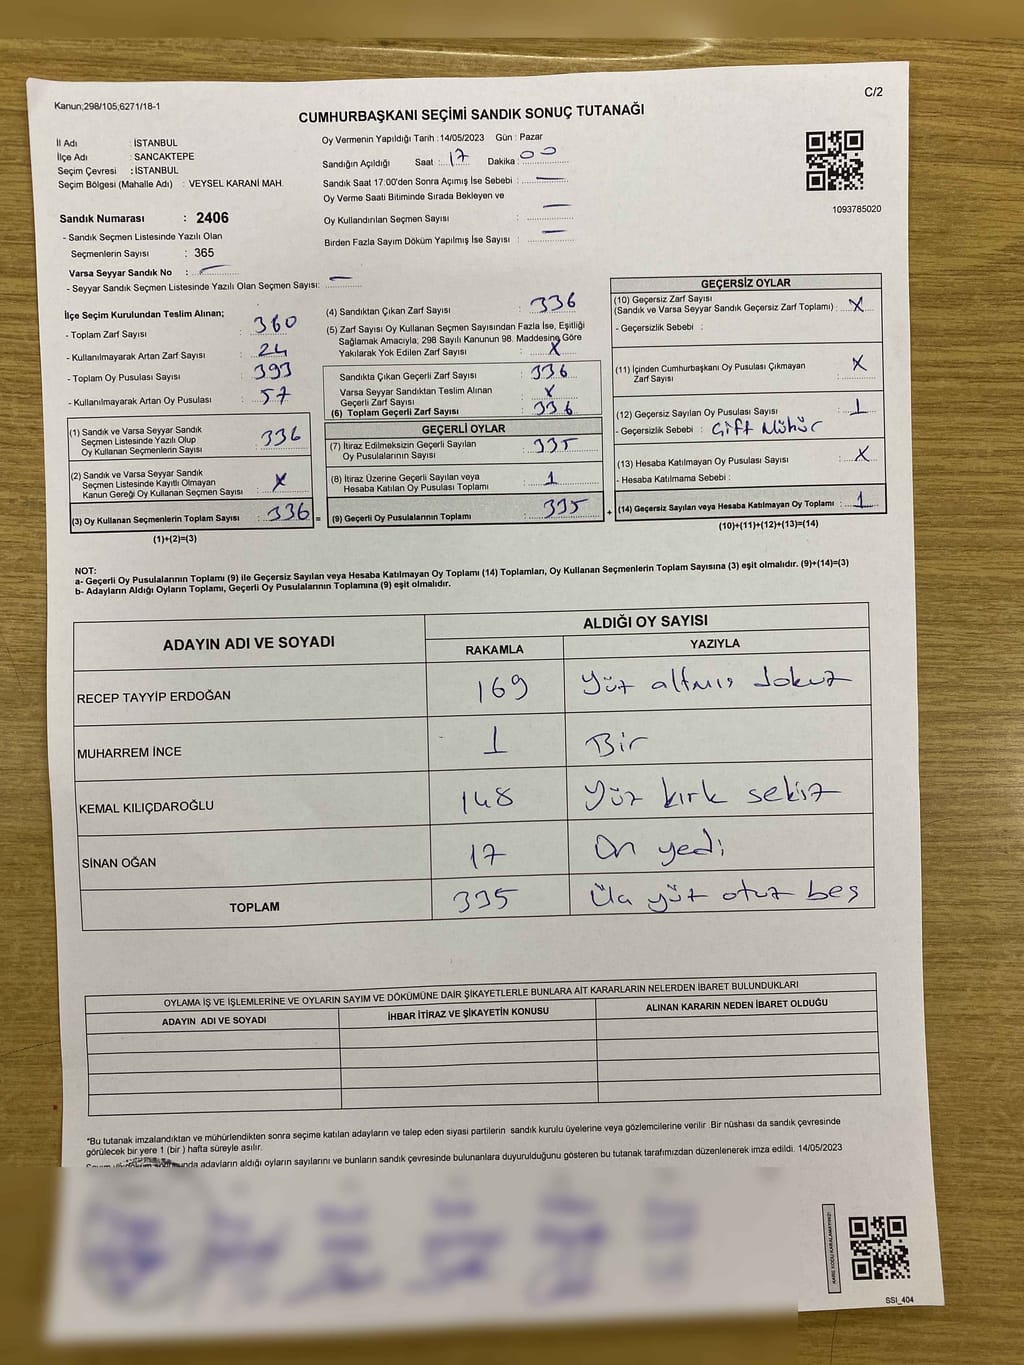 Kanun;298/105;6271/18-1
C/2
CUMHURBAŞKANI SEÇİMİ SANDIK SONUÇ TUTANAĞI
İl Adı : İSTANBUL
İlçe Adı : SANCAKTEPE
Seçim Çevresi : İSTANBUL
Seçim Bölgesi (Mahalle Adı) : VEYSEL KARANİ MAH.
Sandık Numarası : 2406
- Sandık Seçmen Listesinde Yazılı Olan
Seçmenlerin Sayısı : 365
Varsa Seyyar Sandık No :
- Seyyar Sandık Seçmen Listesinde Yazılı Olan Seçmen Sayısı: —
Oy Vermenin Yapıldığı Tarih : 14/05/2023 Gün : Pazar
Sandığın Açıldığı Saat : 17 Dakika : 00
Sandık Saat 17:00'den Sonra Açımış İse Sebebi : —
Oy Verme Saati Bitiminde Sırada Bekleyen ve
Oy Kullandırılan Seçmen Sayısı : —
Birden Fazla Sayım Döküm Yapılmış İse Sayısı : —
1093785020
İlçe Seçim Kurulundan Teslim Alınan;
- Toplam Zarf Sayısı : 360
- Kullanılmayarak Artan Zarf Sayısı : 24
- Toplam Oy Pusulası Sayısı : 393
- Kullanılmayarak Artan Oy Pusulası : 57
(1) Sandık ve Varsa Seyyar Sandık
Seçmen Listesinde Yazılı Olup
Oy Kullanan Seçmenlerin Sayısı : 336
(2) Sandık ve Varsa Seyyar Sandık
Seçmen Listesinde Kayıtlı Olmayan
Kanun Gereği Oy Kullanan Seçmen Sayısı : X
(3) Oy Kullanan Seçmenlerin Toplam Sayısı : 336 =
(1)+(2)=(3)
(4) Sandıktan Çıkan Zarf Sayısı : 336
(5) Zarf Sayısı Oy Kullanan Seçmen Sayısından Fazla İse, Eşitliği
Sağlamak Amacıyla, 298 Sayılı Kanunun 98. Maddesine Göre
Yakılarak Yok Edilen Zarf Sayısı : X
Sandıkta Çıkan Geçerli Zarf Sayısı : 336
Varsa Seyyar Sandıktan Teslim Alınan
Geçerli Zarf Sayısı : X
(6) Toplam Geçerli Zarf Sayısı : 336
GEÇERLİ OYLAR
(7) İtiraz Edilmeksizin Geçerli Sayılan
Oy Pusulalarının Sayısı : 335
(8) İtiraz Üzerine Geçerli Sayılan veya
Hesaba Katılan Oy Pusulası Toplamı : 1
(9) Geçerli Oy Pusulalarının Toplamı : 335 +
GEÇERSİZ OYLAR
(10) Geçersiz Zarf Sayısı
(Sandık ve Varsa Seyyar Sandık Geçersiz Zarf Toplamı) : X
- Geçersizlik Sebebi :
(11) İçinden Cumhurbaşkanı Oy Pusulası Çıkmayan
Zarf Sayısı : X
(12) Geçersiz Sayılan Oy Pusulası Sayısı : 1
- Geçersizlik Sebebi : Çift Mühür
(13) Hesaba Katılmayan Oy Pusulası Sayısı : X
- Hesaba Katılmama Sebebi :
(14) Geçersiz Sayılan veya Hesaba Katılmayan Oy Toplamı : 1
(10)+(11)+(12)+(13)=(14)
NOT:
a- Geçerli Oy Pusulalarının Toplamı (9) ile Geçersiz Sayılan veya Hesaba Katılmayan Oy Toplamı (14) Toplamları, Oy Kullanan Seçmenlerin Toplam Sayısına (3) eşit olmalıdır. (9)+(14)=(3)
b- Adayların Aldığı Oyların Toplamı, Geçerli Oy Pusulalarının Toplamına (9) eşit olmalıdır.
ADAYIN ADI VE SOYADI
ALDIĞI OY SAYISI
RAKAMLA YAZIYLA
RECEP TAYYİP ERDOĞAN 169 Yüz altmış dokuz
MUHARREM İNCE 1 Bir
KEMAL KILIÇDAROĞLU 148 Yüz kırk sekiz
SİNAN OĞAN 17 On yedi
TOPLAM 335 Üç yüz otuz beş
OYLAMA İŞ VE İŞLEMLERİNE VE OYLARIN SAYIM VE DÖKÜMÜNE DAİR ŞİKAYETLERLE BUNLARA AİT KARARLARIN NELERDEN İBARET BULUNDUKLARI
ADAYIN ADI VE SOYADI İHBAR İTİRAZ VE ŞİKAYETİN KONUSU ALINAN KARARIN NEDEN İBARET OLDUĞU
*Bu tutanak imzalandıktan ve mühürlendikten sonra seçime katılan adayların ve talep eden siyasi partilerin sandık kurulu üyelerine veya gözlemcilerine verilir. Bir nüshası da sandık çevresinde
görülecek bir yere 1 (bir) hafta süreyle asılır.
adayların aldığı oyların sayılarını ve bunların sandık çevresinde bulunanlara duyurulduğunu gösteren bu tutanak tarafımızdan düzenlenerek imza edildi. 14/05/2023
KARE KODU KARALAMAYINIZ!
SSI_404